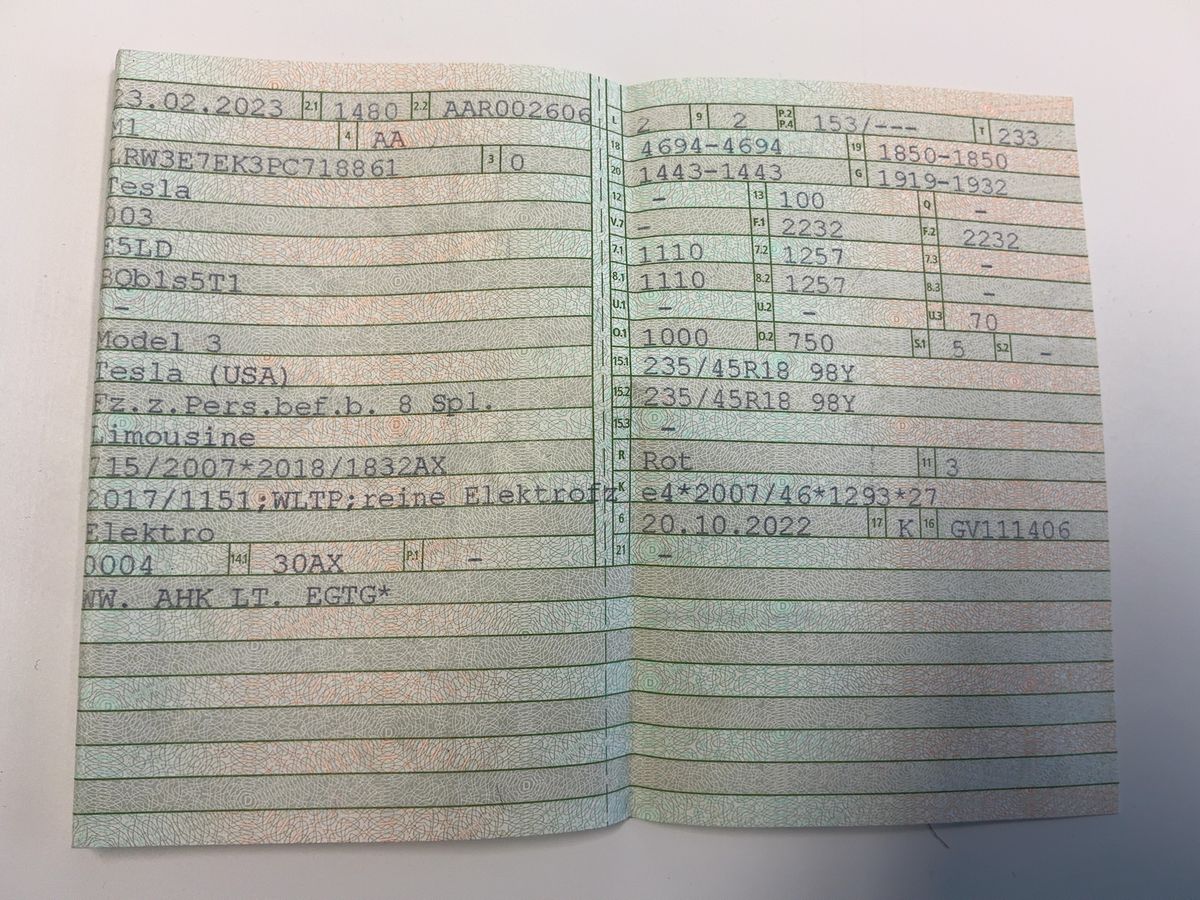 23.02.2023 2.1 1480 2.2 AAR002606
M1 4 AA
LRW3E7EK3PC718861 3 0
Tesla
003
E5LD
Model 3
Tesla (USA)
Fz.z.Pers.bef.b. 8 Spl.
Limousine
715/2007*2018/1832AX
2017/1151;WLTP;reine Elektrofz
Elektro
0004 14.1 30AX P.1 -
WW. AHK LT. EGTG*
L 2 9 2 P.2 P.4 153/--- T 233
18 4694-4694 19 1850-1850
20 1443-1443 G 1919-1932
12 - 13 100 Q -
V.7 - F.1 2232 F.2 2232
7.1 1110 7.2 1257 7.3 -
8.1 1110 8.2 1257 8.3 -
U.1 - U.2 - U.3 70
O.1 1000 O.2 750 S.1 5 S.2 -
15.1 235/45R18 98Y
15.2 235/45R18 98Y
15.3 -
R Rot 11 3
K e4*2007/46*1293*27
6 20.10.2022 17 K 16 GV111406
21 -